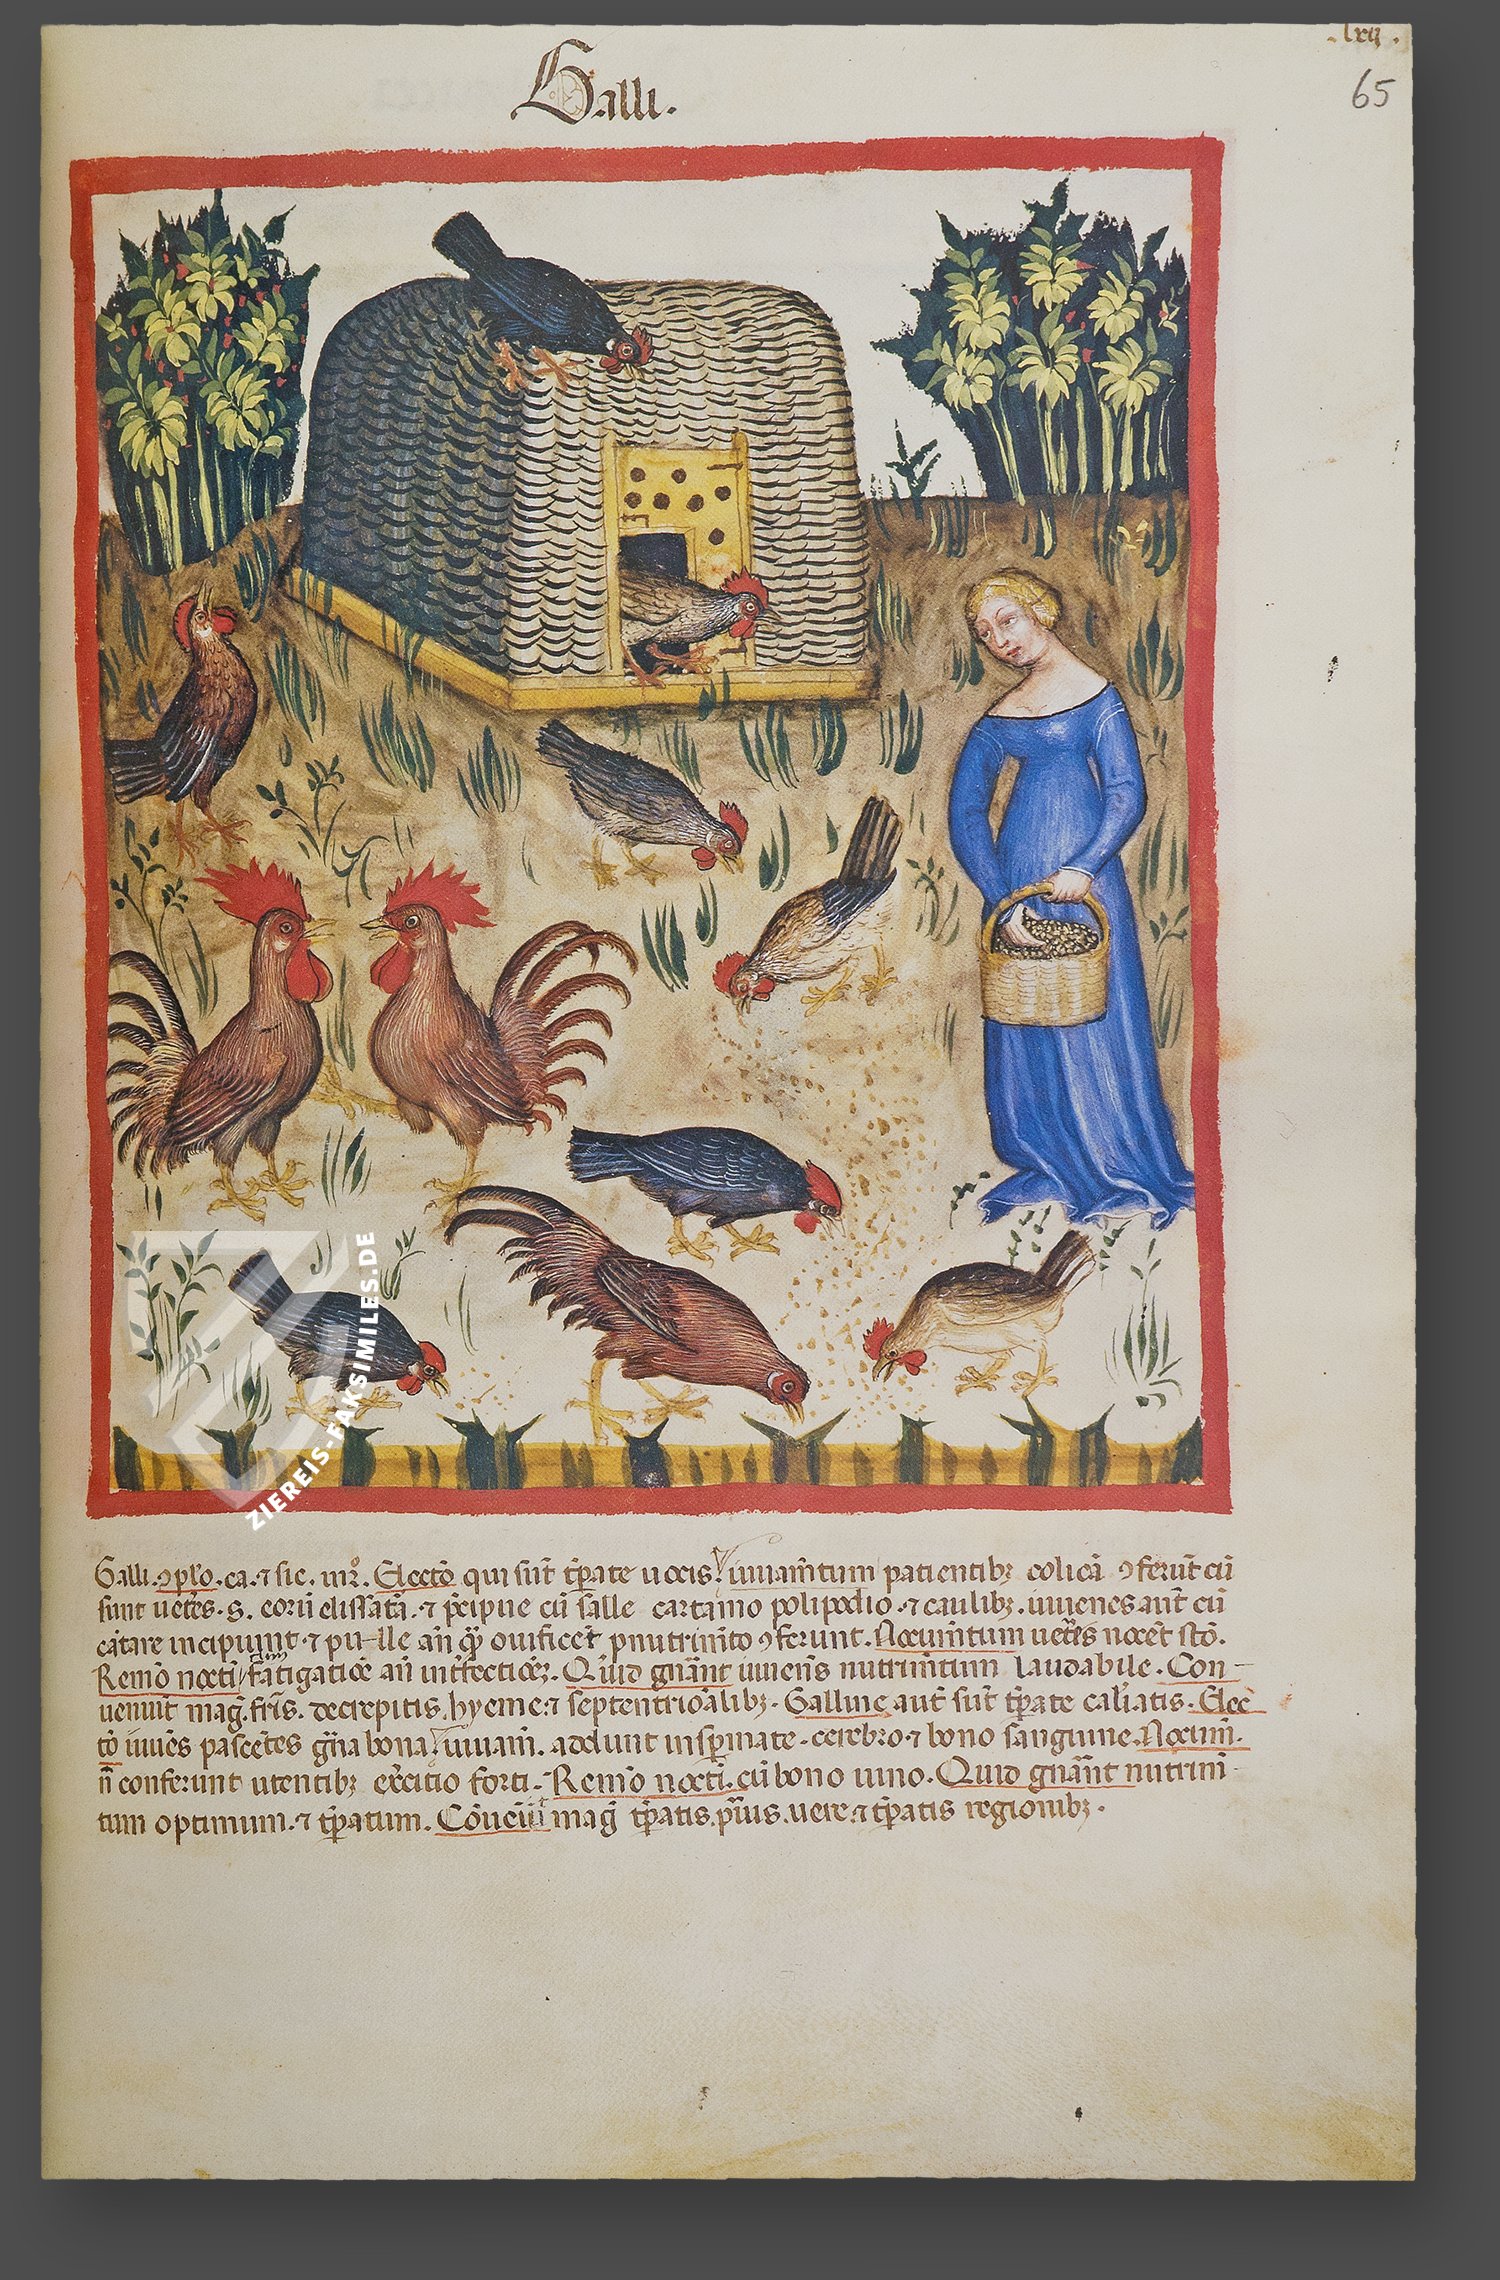 .lxij.
65
Galli.
ZIEREIS-FAKSIMILES.DE
Galli. 9pl'o. ca. ⁊ sic. in 2°. Electō qui sūt tp̄ate uocis. iuuam̄tum patientibꝫ colicā ꝯferūt cū
sunt uet̄es. S. eorū elissata. ⁊ p̄cipue cū salle cartamo polipodio. ⁊ caulibꝫ. iuuenes aūt cū
cātare incipiunt. ⁊ pulle an̄ ouificet pnutrim̄to ꝯferunt. Nocum̄tum uet̄es nocēt sto.
Remō nocti fatigatioē an̄ int̄fectioēꝫ. Quid gnānt iuuenis nutrim̄tum laudabile. Con-
ueniūt mag. fris. decrepitis. hyeme. ⁊ septentrioalibꝫ. Galline aūt sūt tp̄ate cal'iatis. Elec-
tō iuuēs pascētes gña bona. iuuam̄. addunt in sp̄mate. cerebro. ⁊ bono sanguine. Nocum̄.
n̄ conferunt utentibꝫ ex̄citio forti. Remō nocti. cū bono uino. Quid gnānt nutrim̄-
tum optimum. ⁊ tp̄atum. Cōueniūt mag tp̄atis. pūis. uere. ⁊ tp̄atis regionibꝫ.